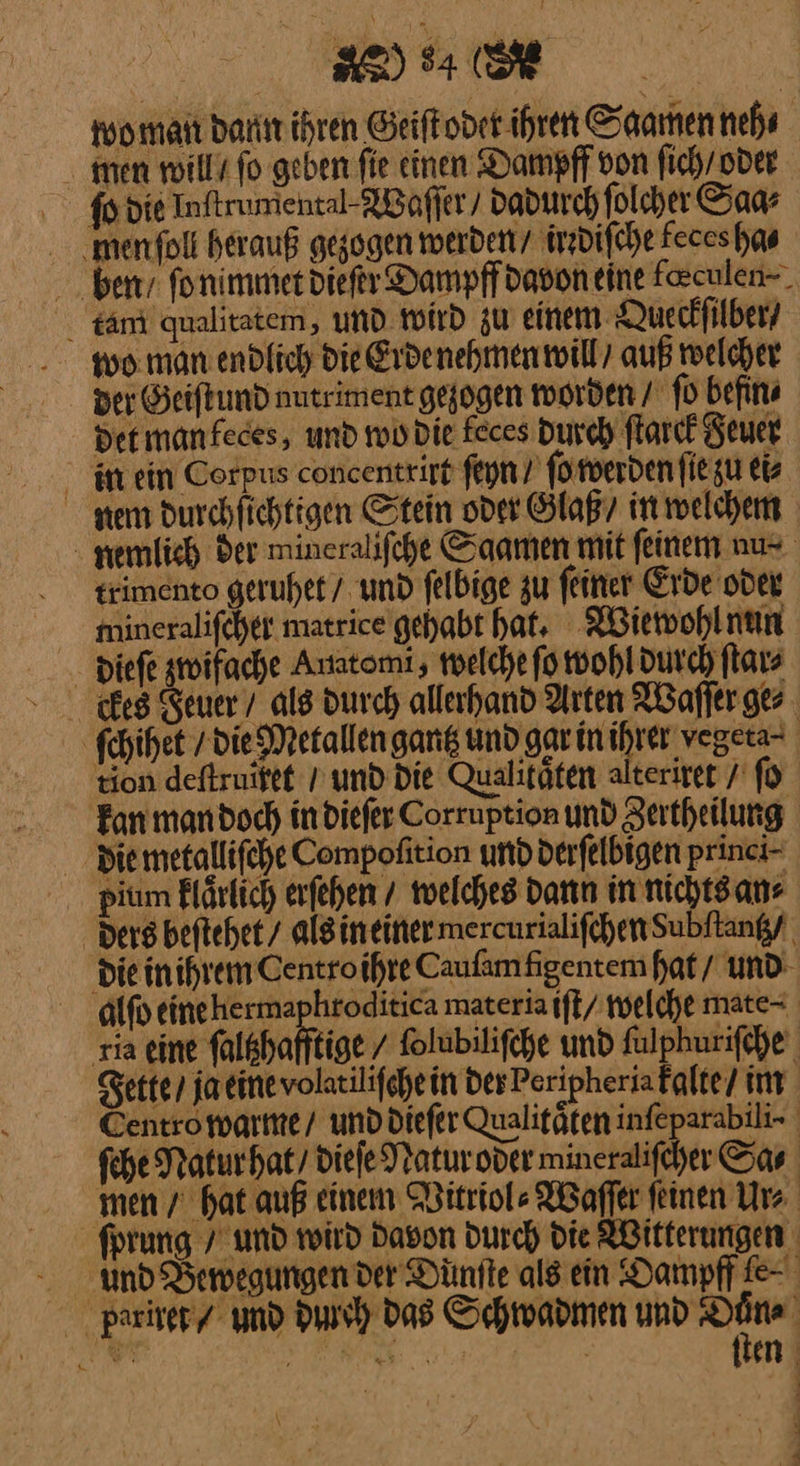 84
wo man dann ihren Geiſt oder ihren Saamen neh⸗
men will / ſo geben ſie einen Dampff von ſich / oder
ſo die Inſtrumental-Waſſer / dadurch ſolcher Saa⸗
men ſoll herauß gezogen werden / irꝛdiſche feces ha⸗
ben / ſo nimmet dieſer Dampff davon eine fœculen-
tam qualitatem, und wird zu einem Queckſilber /
wo man endlich die Erde nehmen will / auß welcher
der Geiſt und nutriment gezogen worden / ſo befin⸗
det man feces, und wo die feces durch ſtarck Feuer
in ein Corpus concentrirt ſeyn / ſo werden ſie zu ei⸗
nem durchſichtigen Stein oder Glaß / in welchem
nemlich der mineraliſche Saamen mit ſeinem nu-
trimento geruhet / und ſelbige zu ſeiner Erde oder
mineraliſcher matrice gehabt hat. Wiewohl nun
dieſe zwifache Anatomi, welche ſo wohl durch ſtar⸗
ckes Feuer / als durch allerhand Arten Waſſer ge⸗
ſchihet / die Metallen gantz und gar in ihrer vegeta-
tion deſtruiret / und die Qualitåten alteriret / ſo
kan man doch in dieſer Corruption und Zertheilung
die metalliſche Compoſition und derſelbigen princi-
pium klårlich erſehen / welches dann in nichts an⸗
ders beſtehet / als in einer mercurialiſchen Subſtantz /
die in ihrem Centro ihre Cauſam figentem hat / und
alſo eine hermaphroditica materia iſt / welche mate-
ria eine ſaltzhafftige / ſolubiliſche und ſulphuriſche
Fette / ja eine volatiliſche in der Peripheria kalte / im
Centro warme / und dieſer Qualitåten inſeparabili-
ſche Natur hat / dieſe Natur oder mineraliſcher Sa⸗
men / hat auß einem Vitriol⸗Waſſer ſeinen Ur⸗
ſprung / und wird davon durch die Witterungen
und Bewegungen der Dünſte als ein Dampff ſe-
pariret / und durch das Schwadmen und Důn⸗
ſten